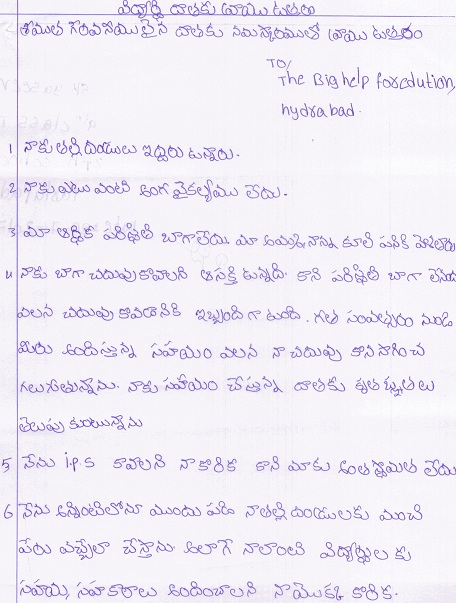 విద్యార్థి దాతకు వ్రాయు ఉత్తరం
శ్రీమతి గౌరవనీయులైన దాతకు నమస్కారములతో వ్రాయు ఉత్తరం
TO/
The Big help foredution,
hydrabad.
1 నాకు తల్లి దండ్రులు ఇద్దరు ఉన్నారు.
2 నాకు ఎటు వంటి అంగ వైకల్యము లేదు.
3 మా ఆర్థిక పరిస్థితి బాగాలేదు. మా అమ్మ నాన్న కూలి పనికి వెళతారు
4 నాకు బాగా చదువుకోవాలని ఆసక్తి ఉన్నది. కాని పరిస్థితి బాగా లేనందు
వలన చదువు కోవడానికి ఇబ్బంది గా ఉంది. గత సంవత్సరం నుండి
మీరు అందిస్తున్న సహాయం వలన నా చదువు కొనసాగించ
గలుగుతున్నాను. నాకు సహాయం చేస్తున్న దాతకు కృతజ్ఞతలు
తెలుపు కుంటున్నాను
5 నేను i.p.s కావాలని నా కోరిక కాని మాకు అంత స్తోమత లేదు
6 నేను అన్నింటిలోనూ ముందు పడి నా తల్లి దండ్రులకు మంచి
పేరు వచ్చేలా చేస్తాను అలాగే నాలాంటి విద్యార్థుల కు
సహాయ సహకారాలు అందించాలని నా యొక్క కోరిక.